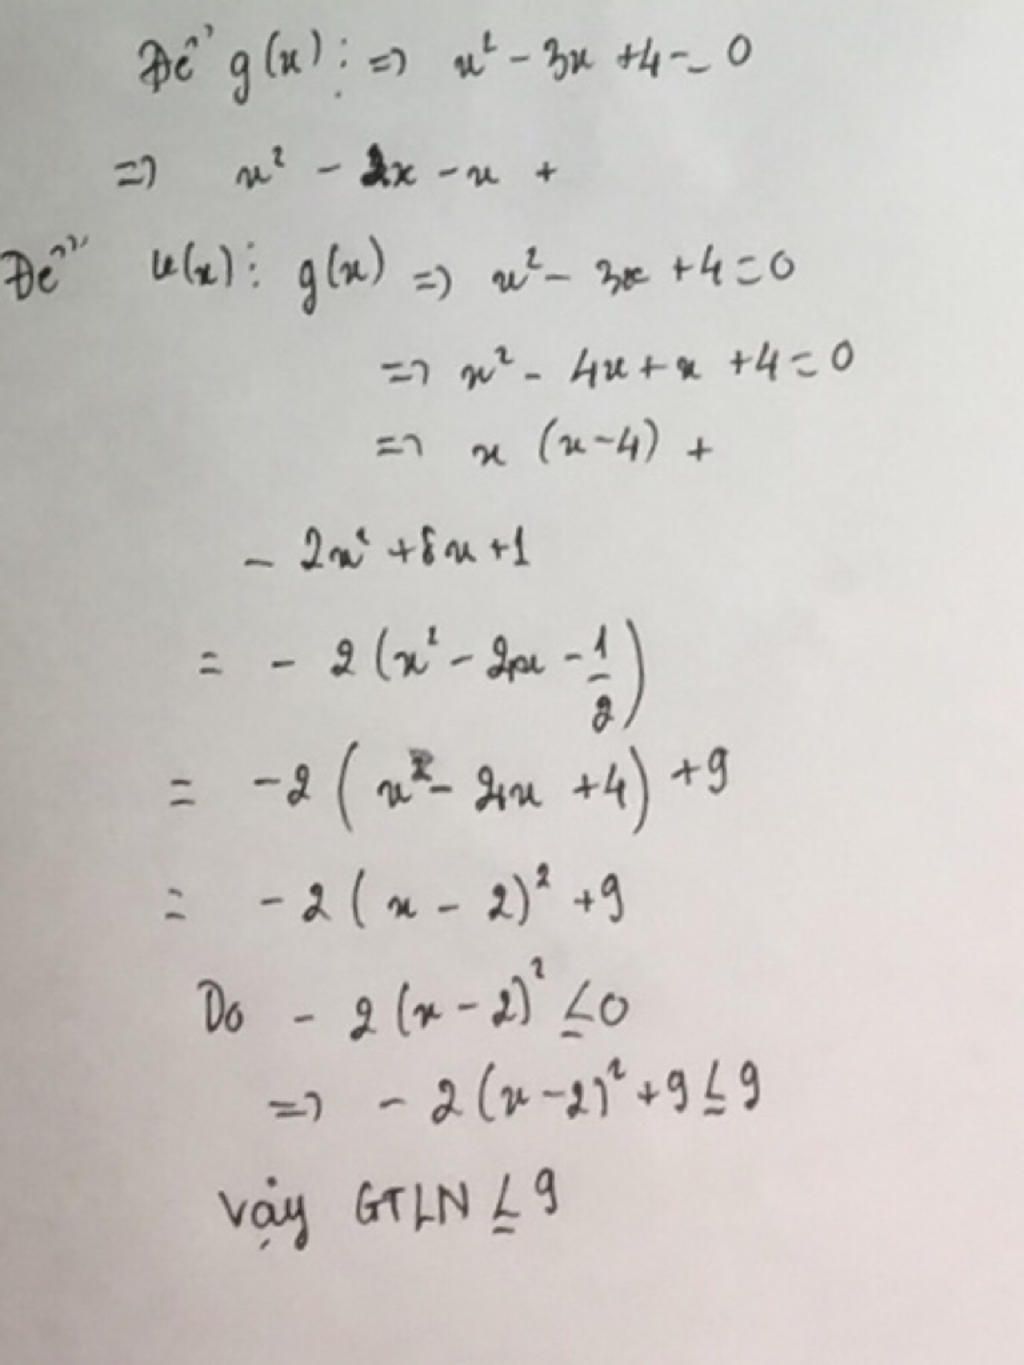 Để g(x) : => x² - 3x + 4 = 0
=> x² - 2x - x +
Để k(x) : g(x) => x² - 3x + 4 = 0
=> x² - 4x + x + 4 = 0
=> x (x - 4) +
- 2x² + 8x + 1
= - 2 (x² - 2x - 1/2)
= - 2 (x² - 4x + 4) + 9
= - 2 (x - 2)² + 9
Do - 2 (x - 2)² ≤ 0
=> - 2 (x - 2)² + 9 ≤ 9
Vậy GTLN ≤ 9